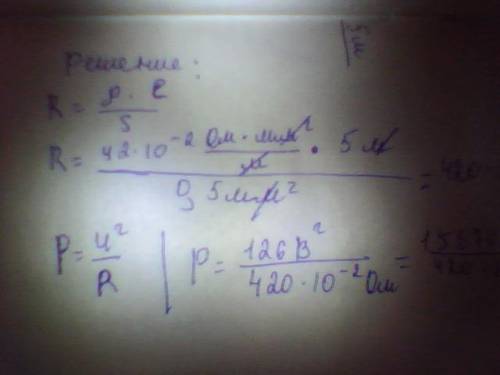 5 м
Решение:
R = ρ · ℓ / S
R = 42·10⁻² Ом·мм² / м · 5 м / 0,5 мм² = 420
P = U² / R | P = 126 В² / 420·10⁻² Ом =